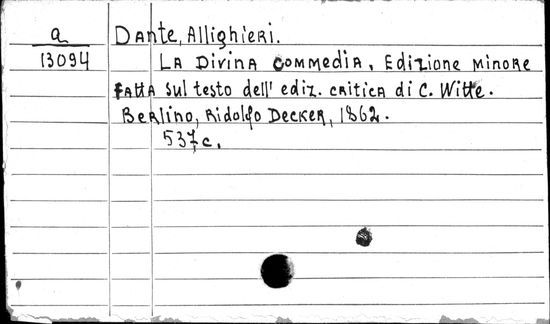 a
13094
Dante, Allighieri.
La Divina Commedia. Edizione minore
fatta sul testo dell' ediz. critica di C. Witte.
Berlino, Ridolfo Decker, 1862.
537 c.